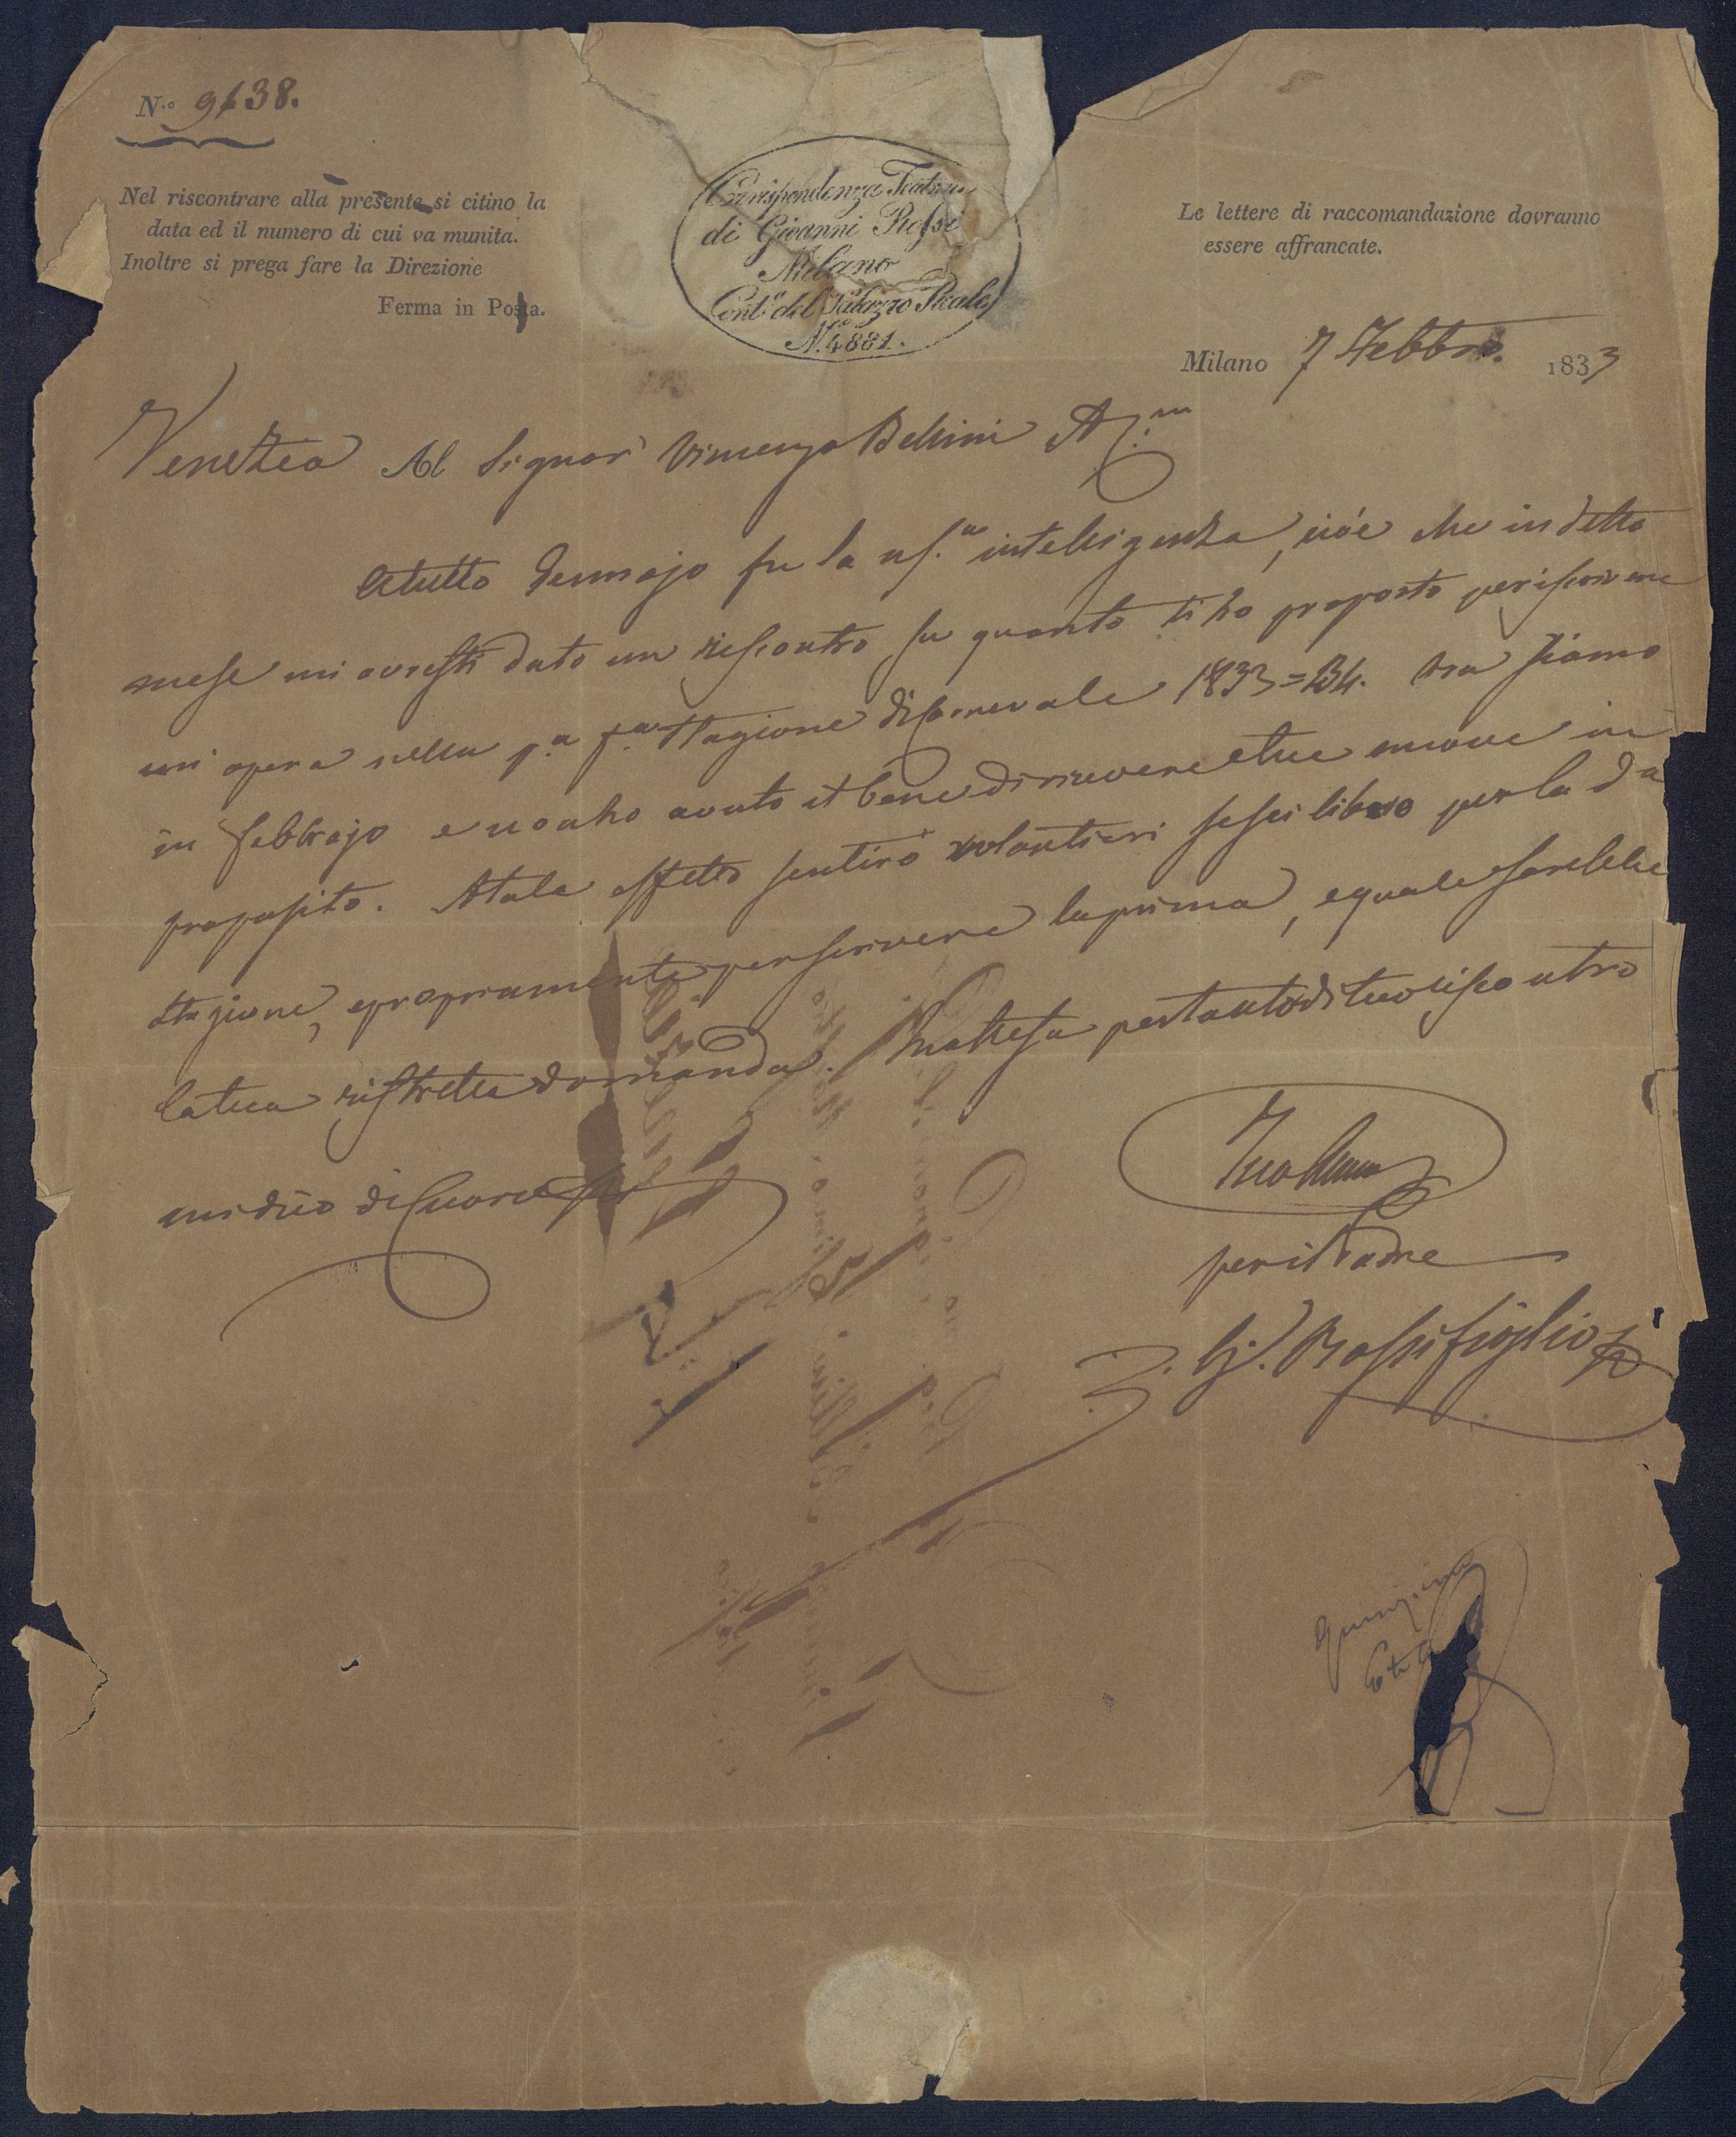 N.o 9138.
Nel riscontrare alla presente si citino la
data ed il numero di cui va munita.
Inoltre si prega fare la Direzione
Ferma in Posta.
Corrispondenza Teatrale
di Gioanni Rossi
Milano
Cont.a del Palazzo Reale
N.o 4881.
Le lettere di raccomandazione dovranno
essere affrancate.
Milano 7 Febbro. 1833
Venezia Al Signor Vincenzo Bellini
A tutto Gennajo fu la ns.a intelligenza, cioè che in detto
mese mi avresti dato un riscontro su quanto ti ho proposto per iscrivere
un opera nella p.a stagione di Carnevale 1833=34. Ora siamo
in febbrajo e non ho avuto il bene di ricevere tue nuove in
proposito. A tale effetto sentirò volontieri se sei libero per la da
stagione, e propriamente per scrivere la prima, e quale sarebbe
la tua ristretta domanda. In attesa pertanto di tuo riscontro
mi dico di Cuore
per il Padre
G. Rossi figlio